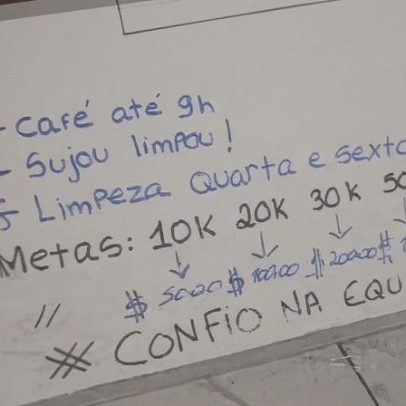 - Café até 9h
- Sujou limpou!
- Limpeza Quarta e sexta
Metas: 10K 20K 30K 50
// $ 5000 $ 10000 $ 20000 $
* CONFIO NA EQU